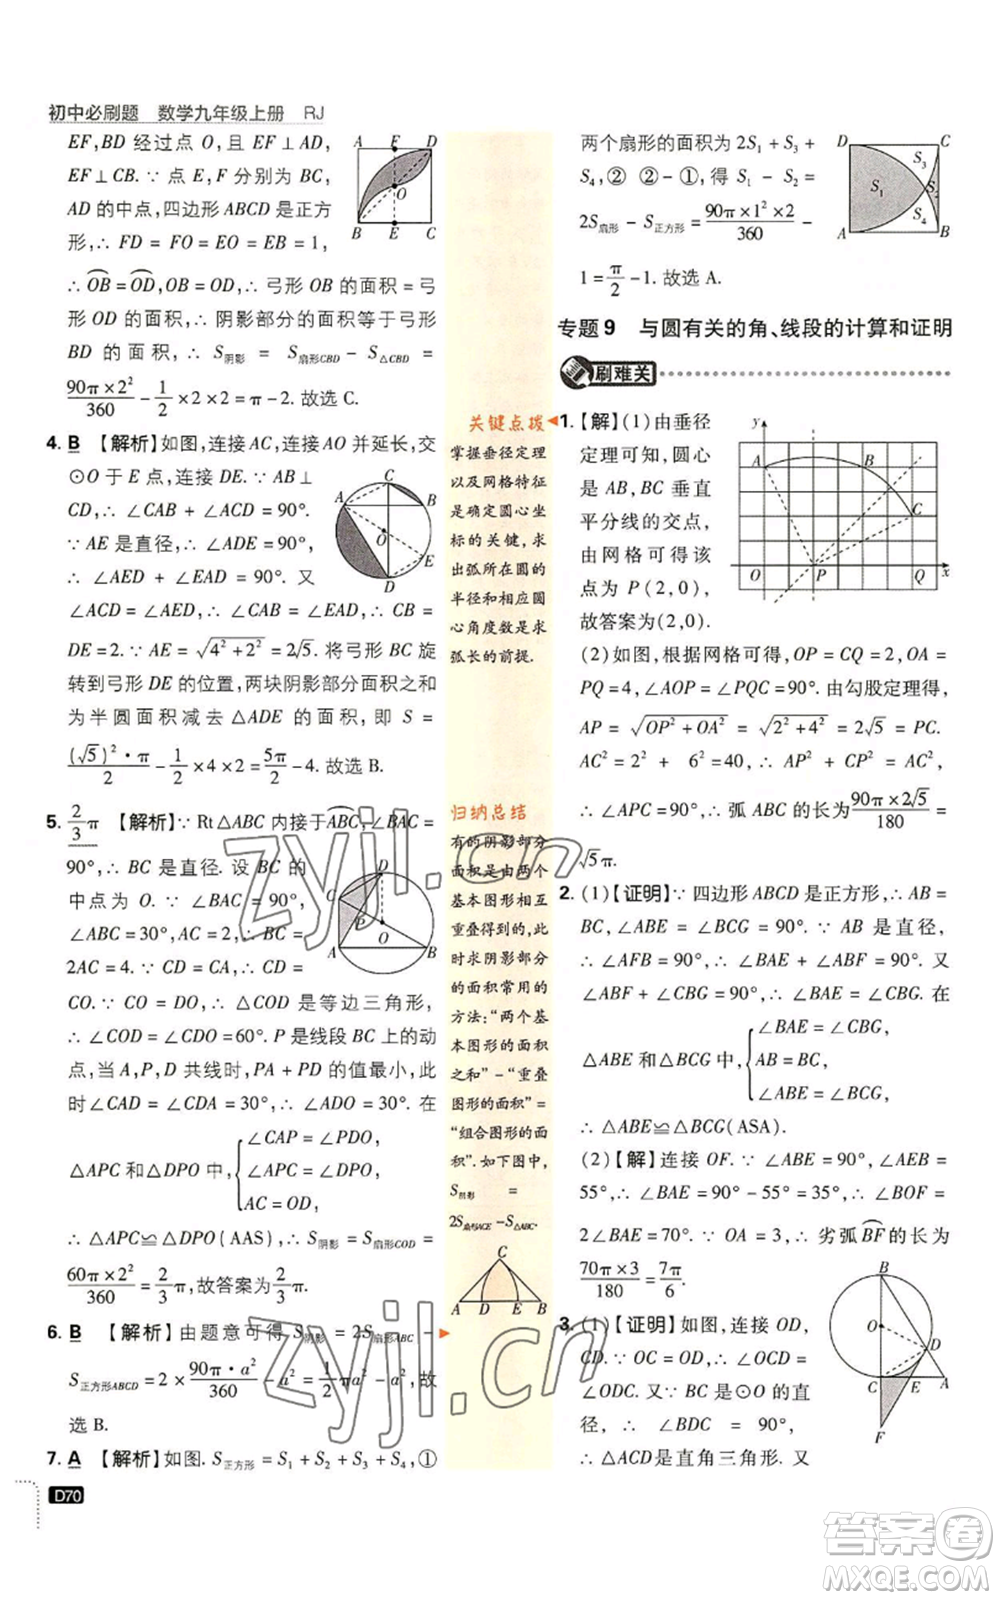 初中必刷题 数学九年级上册 RJ
EF,BD 经过点 O,∴ EF⊥AD,
EF⊥CB.∵ 点 E,F 分别为 BC,
AD 的中点,四边形 ABCD 是正方
形,∴ FD = FO = EO = EB = 1,
∴ OB = OD,∴ 弓形 OB 的面积 = 弓
形 OD 的面积,∴ 阴影部分的面积等于弓形
BD 的面积. ∴ S阴影 = S扇形CBD - S△CBD =
90π×2²/360 - 1/2×2×2 = π-2.故选 C.
4. B 【解析】如图,连接 AC,连接 AO 并延长,交
⊙O 于 E 点,连接 DE. ∵ AB⊥
CD,∴ ∠CAB + ∠ACD = 90°.
∵ AE 是直径,∴ ∠ADE = 90°,
∴ ∠AED + ∠EAD = 90°. 又
∠ACD = ∠AED,∴ ∠CAB = ∠EAD,∴ CB =
DE = 2. ∵ AE = √(4²+2²) = 2√5. 将弓形 BC 旋
转到弓形 DE 的位置,两块阴影部分面积之和
为半圆面积减去 △ADE 的面积,即 S =
(√5)²·π/2 - 1/2×4×2 = 5π/2 - 4.故选 B.
5. 2/3π 【解析】∵ Rt△ABC 内接于ABC,∠BAC =
90°,∴ BC 是直径. 设 BC 的
中点为 O. ∵ ∠BAC = 90°,
∠ABC = 30°,AC = 2,∴ BC =
2AC = 4. ∵ CD = CA,∴ CD =
CO. ∵ CO = DO,∴ △COD 是等边三角形,
∴ ∠COD = ∠CDO = 60°. P 是线段 BC 上的动
点,当 A,P,D 共线时,PA + PD 的值最小,此
时∠CAD = ∠CDA = 30°,∴ ∠ADO = 30°. 在
△APC 和△DPO 中,{∠CAP = ∠PDO, ∠APC = ∠DPO, AC = OD,
∴ △APC≌△DPO(AAS),∴ S阴影 = S扇形COD =
60π×2²/360 = 2/3π,故答案为 2/3π.
6. B 【解析】由题意可得,S阴影 = 2S扇形ABC -
S正方形ABCD = 2×90π·a²/360 - a² = π/2a² - a²,故
选 B.
7. A 【解析】如图. S正方形 = S₁ + S₂ + S₃ + S₄,①
D70
关键点拨
掌握垂径定理
以及网格特征
是确定圆心坐
标的关键,求
出弧所在圆的
半径和相应圆
心角度数是求
弧长的前提.
归纳总结
有的阴影部分
面积是由两个
基本图形相互
重叠得到的,此
时求阴影部分
的面积常用的
方法:“两个基
本图形的面积
之和” - “重叠
图形的面积” =
“组合图形的面
积”.如下图中,
S阴影 =
2S扇形ACE - S△ABC.
两个扇形的面积为 2S₁ + S₃ +
S₄,② ② - ①,得 S₁ - S₂ =
2S扇形 - S正方形 = 90π×1²×2/360 -
1 = π/2 - 1.故选 A.
专题 9 与圆有关的角、线段的计算和证明
刷难关
1. 【解】(1)由垂径
定理可知,圆心
是 AB,BC 垂直
平分线的交点,
由网格可得该
点为 P(2,0),
故答案为(2,0).
(2)如图,根据网格可得,OP = CQ = 2,OA =
PQ = 4,∠AOP = ∠PQC = 90°. 由勾股定理得,
AP = √(OP²+OA²) = √(2²+4²) = 2√5 = PC.
AC² = 2² + 6² = 40,∴ AP² + CP² = AC²,
∴ ∠APC = 90°,∴ 弧 ABC 的长为90π×2√5/180 =
√5π.
2. (1)【证明】∵ 四边形 ABCD 是正方形,∴ AB =
BC,∠ABE = ∠BCG = 90°. ∵ AB 是直径,
∴ ∠AFB = 90°,∴ ∠BAF + ∠ABF = 90°. 又
∠ABF + ∠CBG = 90°,∴ ∠BAE = ∠CBG. 在
△ABE 和△BCG 中,{∠BAE = ∠CBG, AB = BC, ∠ABE = ∠BCG,
∴ △ABE≌△BCG(ASA).
(2)【解】连接 OF. ∵ ∠ABE = 90°,∠AEB =
55°,∴ ∠BAE = 90° - 55° = 35°,∴ ∠BOF =
2∠BAE = 70°. ∵ OA = 3,∴ 劣弧BF的长为
70π×3/180 = 7π/6.
3. (1)【证明】如图,连接 OD,
CD. ∵ OC = OD,∴ ∠OCD =
∠ODC. 又∵ BC 是⊙O 的直
径,∴ ∠BDC = 90°,
∴ △ACD 是直角三角形. 又
zyjl.cn
答案圈
MXQE.COM